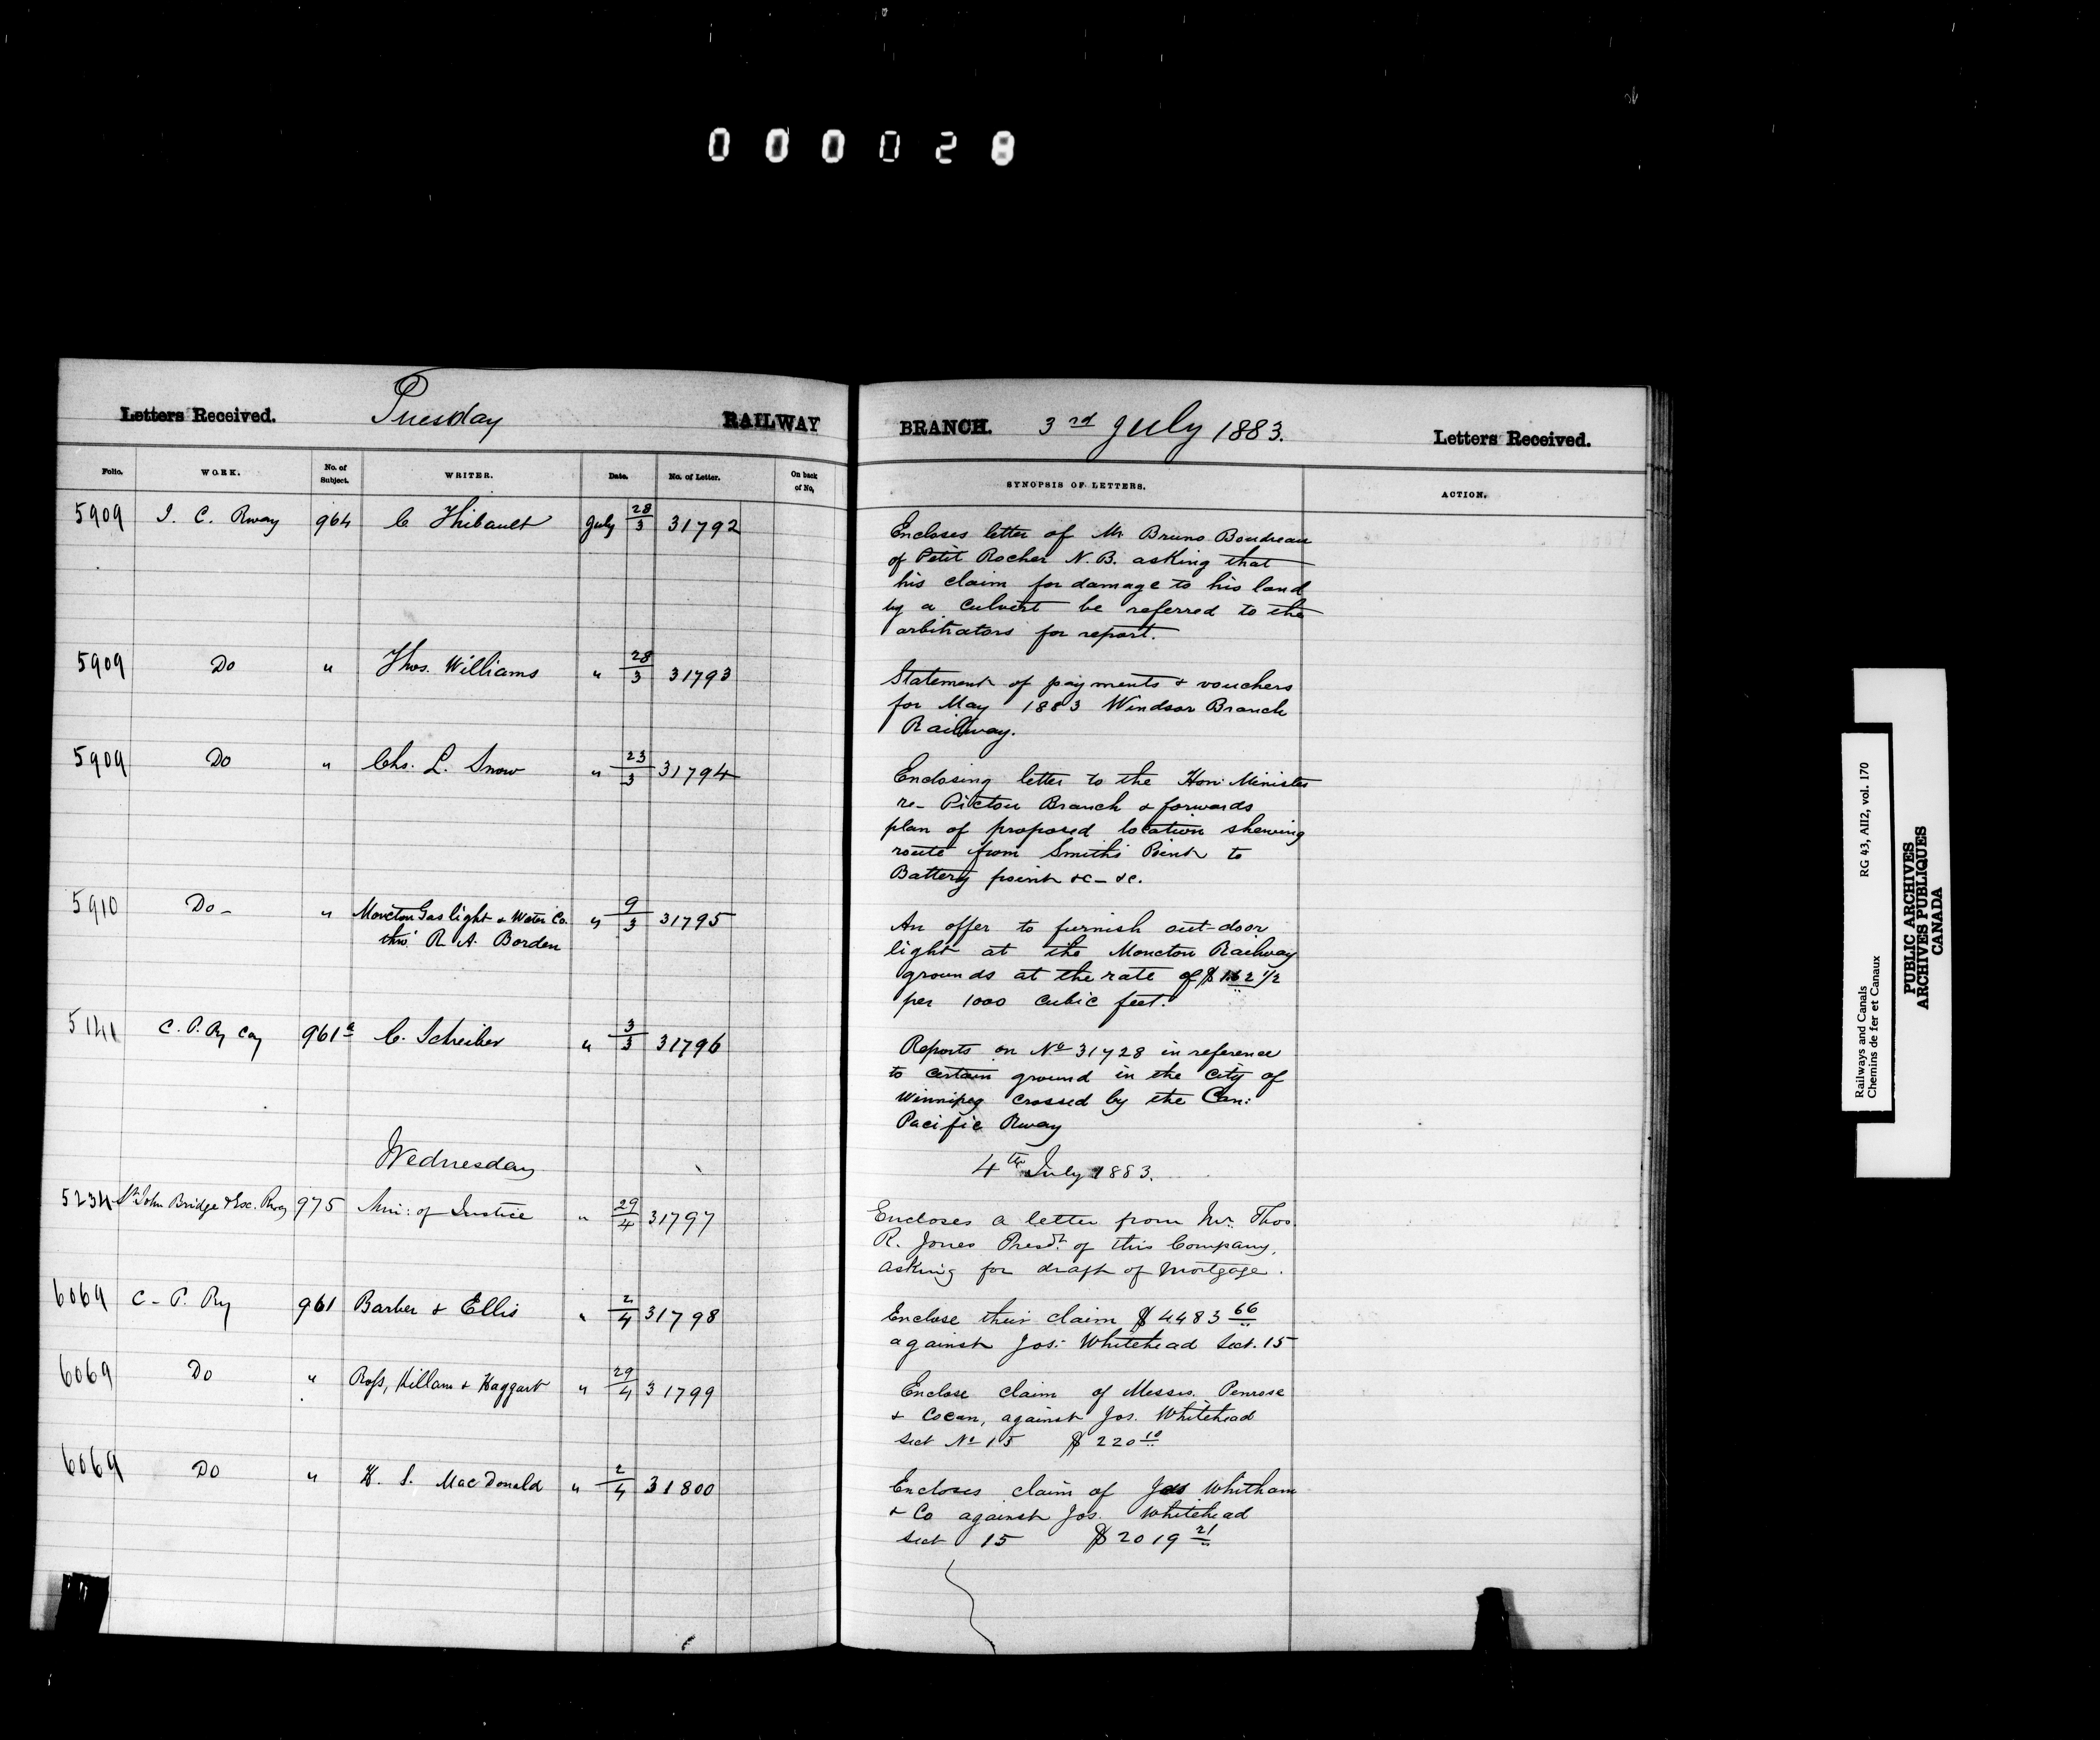 000028
Letters Received. Tuesday RAILWAY BRANCH. 3rd July 1883. Letters Received.
Folio. WORK. No. of Subject. WRITER. Date. No. of Letter. On back of No. SYNOPSIS OF LETTERS. ACTION.
5909 I. C. Rway 964 C Thibault July 28/3 31792
Encloses letter of Mr Bruno Boudreau
of Petit Rocher N.B. asking that
his claim for damage to his land
by a culvert be referred to the
arbitrators for report.
5909 Do " Thos. Williams " 28/3 31793
Statement of payments & vouchers
for May 1883 Windsor Branch
Railway.
5909 Do " Chs. L. Snow " 23/3 31794
Enclosing letter to the Hon: Minister
re- Pictou Branch & forwards
plan of proposed location shewing
route from Smith's Point to
Battery point &c - &c.
5910 Do - " Moncton Gas light & Water Co. " 9/3 31795
thro' R. A. Borden
An offer to furnish out-door
light at the Moncton Railway
grounds at the rate of $1.62 1/2
per 1000 cubic feet.
5141 C. P. Ry Coy 961a C. Schreiber " 3/3 31796
Reports on No 31728 in reference
to certain ground in the City of
Winnipeg crossed by the Can:
Pacific Rway
Wednesday 4th July 1883.
5234 St John Bridge & Exc. Rway 975 Min: of Justice " 29/4 31797
Encloses a letter from Mr. Thos.
R. Jones Presdt. of this Company,
asking for draft of Mortgage.
6069 C - P. Ry 961 Barber & Ellis " 2/4 31798
Enclose their claim $4483 66
against Jos: Whitehead Sect. 15
6069 Do " Ross, Killam & Haggart " 29/4 31799
Enclose claim of Messrs. Penrose
& Cocan, against Jos. Whitehead
Sect No 15 $220 10
6069 Do " H. S. MacDonald " 2/4 31800
Encloses claim of Jas Whitham
& Co against Jos. Whitehead
Sect 15 $2019 21
Railways and Canals RG 43, AII2, vol. 170
Chemins de fer et Canaux
PUBLIC ARCHIVES
ARCHIVES PUBLIQUES
CANADA